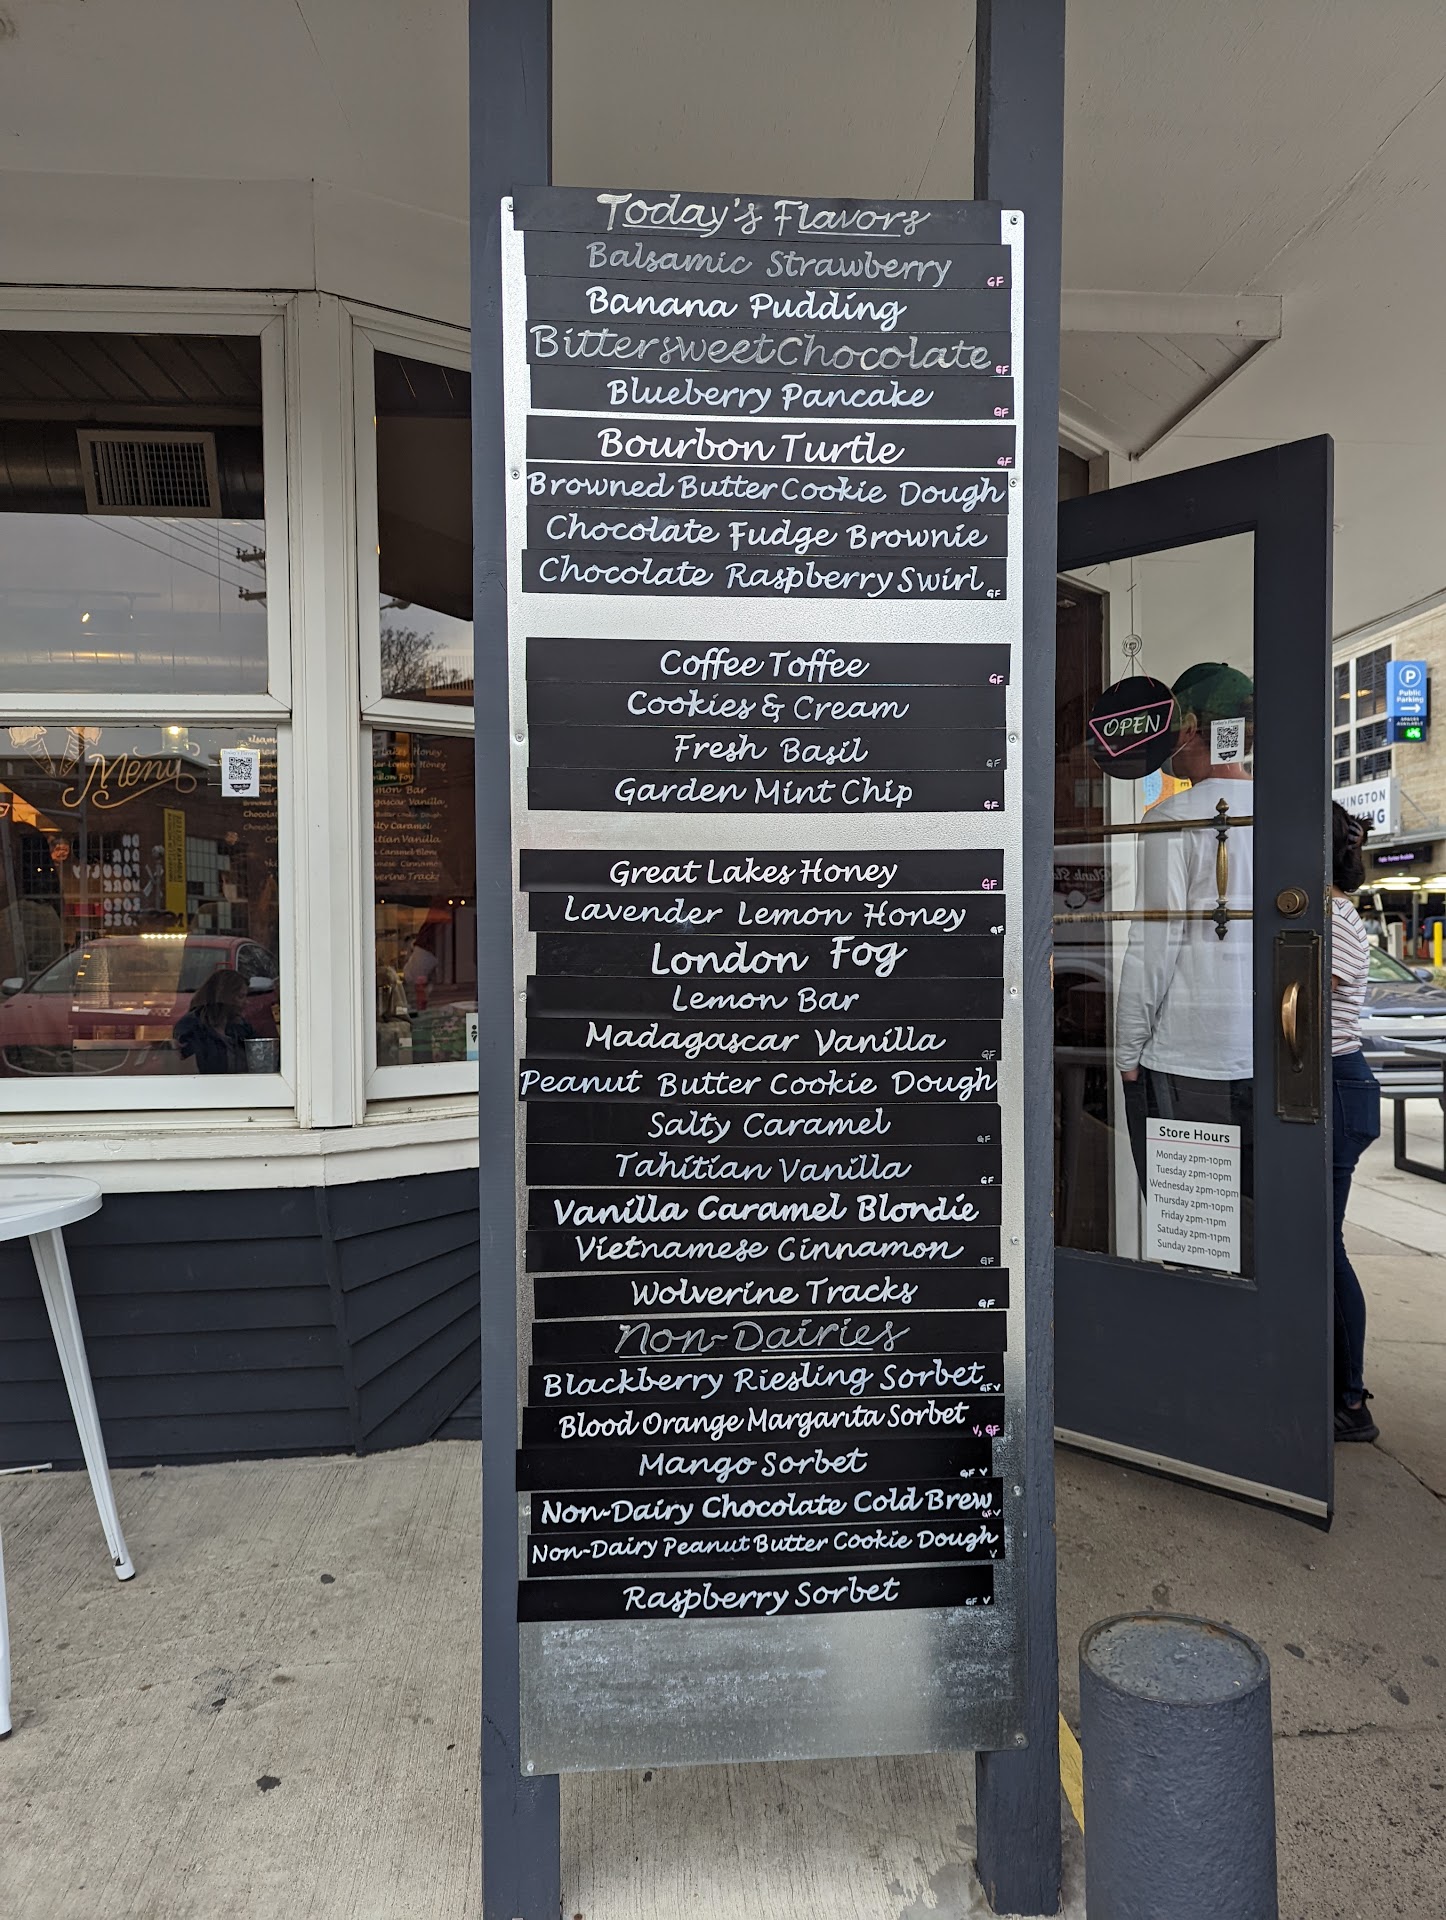 Today's Flavors
Balsamic Strawberry GF
Banana Pudding
Bittersweet Chocolate GF
Blueberry Pancake GF
Bourbon Turtle GF
Browned Butter Cookie Dough
Chocolate Fudge Brownie
Chocolate Raspberry Swirl GF
Coffee Toffee GF
Cookies & Cream
Fresh Basil GF
Garden Mint Chip GF
Great Lakes Honey GF
Lavender Lemon Honey GF
London Fog
Lemon Bar
Madagascar Vanilla GF
Peanut Butter Cookie Dough
Salty Caramel GF
Tahitian Vanilla GF
Vanilla Caramel Blondie
Vietnamese Cinnamon GF
Wolverine Tracks GF
Non-Dairies
Blackberry Riesling Sorbet GF V
Blood Orange Margarita Sorbet V, GF
Mango Sorbet GF V
Non-Dairy Chocolate Cold Brew GF V
Non-Dairy Peanut Butter Cookie Dough V
Raspberry Sorbet GF V
Menu
OPEN
Store Hours
Monday 2pm-10pm
Tuesday 2pm-10pm
Wednesday 2pm-10pm
Thursday 2pm-10pm
Friday 2pm-11pm
Satuday 2pm-11pm
Sunday 2pm-10pm
P
Public
Parking